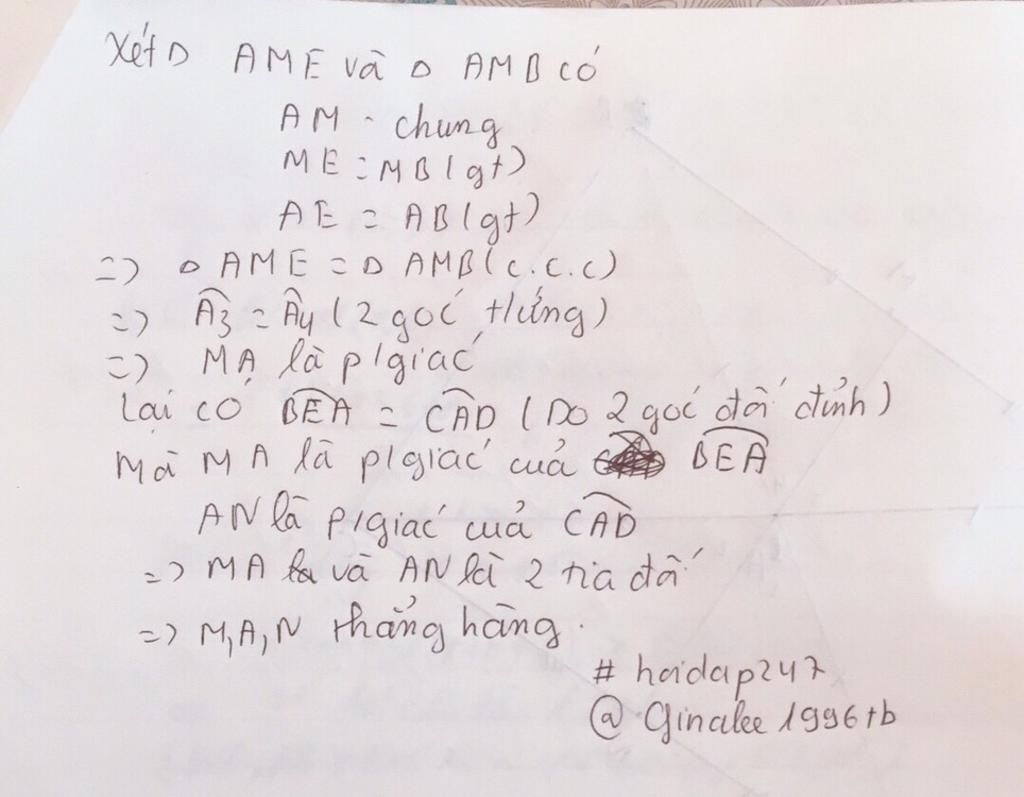 Xét Δ AME và Δ AMB có
AM - chung
ME = MB (gt)
AE = AB (gt)
=> Δ AME = Δ AMB (c.c.c)
=> Â3 = Â4 (2 góc t/ứng)
=> MA là p/giác
Lại có BEA = CAD (Do 2 góc đối đỉnh)
Mà MA là p/giác của BEA
AN là p/giác của CAD
=> MA và AN là 2 tia đối
=> M,A,N thẳng hàng.
# hoidap247
@ Ginalee1996tb